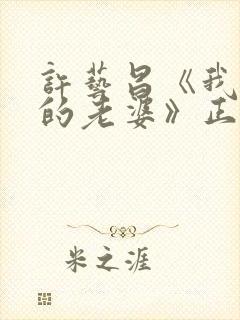 許藝昌《我
的老婆》正
米之涯